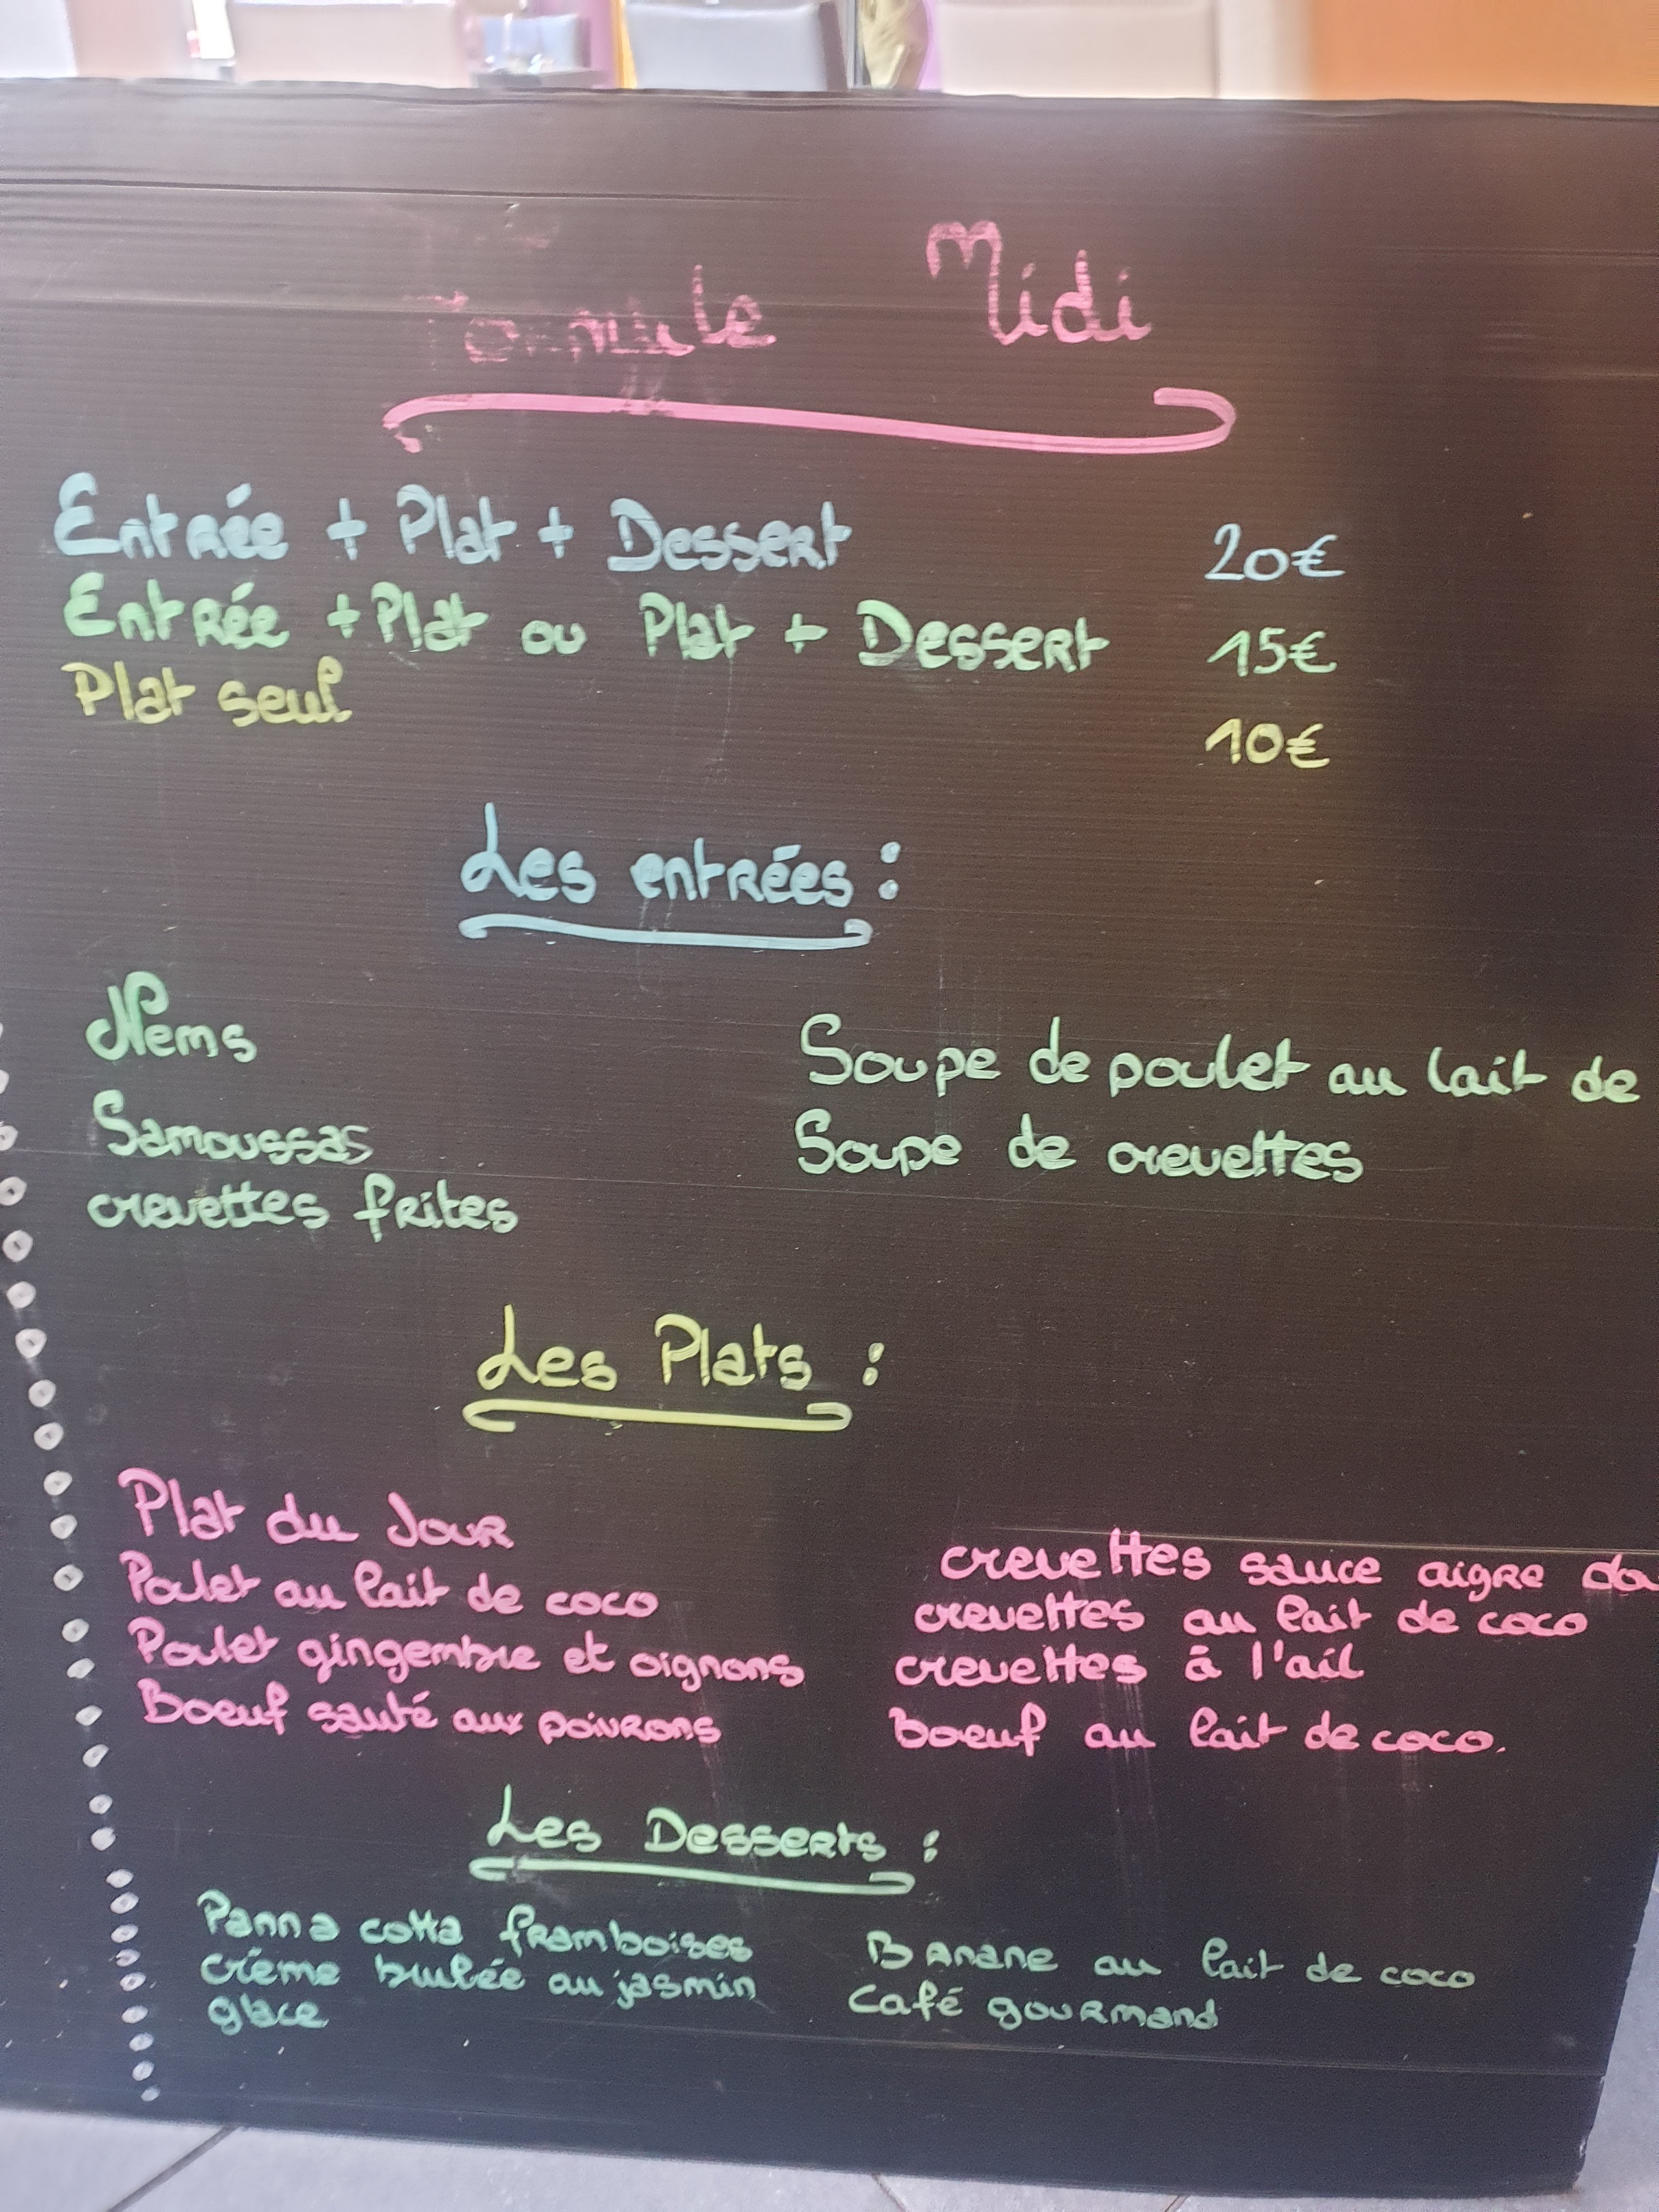 Formule Midi
Entrée + Plat + Dessert 20€
Entrée + Plat ou Plat + Dessert 15€
Plat seul 10€
Les entrées :
Nems
Samoussas
crevettes frites
Soupe de poulet au lait de
Soupe de crevettes
Les Plats :
Plat du Jour
Poulet au lait de coco
Poulet gingembre et oignons
Boeuf sauté aux poivrons
crevettes sauce aigre dou
crevettes au lait de coco
crevettes à l'ail
boeuf au lait de coco.
Les Desserts :
Panna cotta framboises
crème brulée au jasmin
glace
Banane au lait de coco
Café gourmand